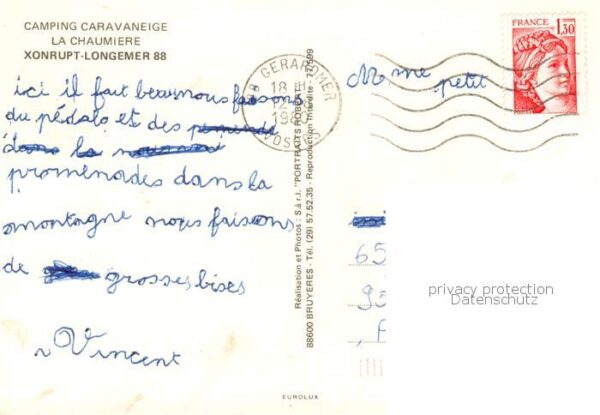 CAMPING CARAVANEIGE
LA CHAUMIERE
XONRUPT-LONGEMER 88
ici il fait beau nous faisons
du pédalo et des
dans la
promenades dans la
montagne nous frisons
de grosses bises
Vincent
88 GERARDMER
18 H
VOSGES
Réalisation et Photos : S.à r.l. "PORTRAITS ROBERT"
88600 BRUYERES - Tél. (29) 57.52.35 - Reproduction Interdite - 11/599
EUROLUX
FRANCE
1,30
Mme petit
65
95
privacy protection
Datenschutz